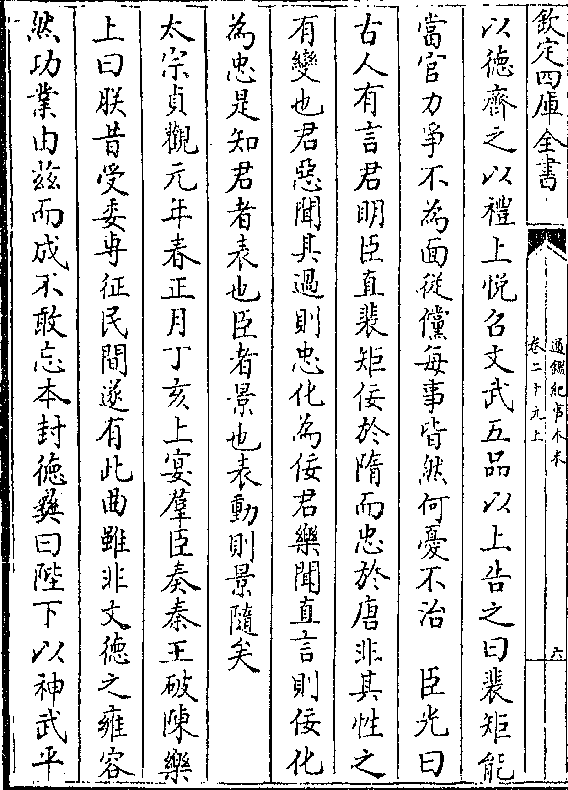 欽定四庫全書
通鑑紀事本末
卷二十九上
六
以德齊之以禮上悦召文武五品以上告之曰裴矩能
當官力爭不為面從儻每事皆然何憂不治　臣光曰
古人有言君明臣直裴矩佞於隋而忠於唐非其性之
有變也君惡聞其過則忠化為佞君樂聞直言則佞化
為忠是知君者表也臣者景也表動則景隨矣
太宗貞觀元年春正月丁亥上宴羣臣奏秦王破陳樂
上曰朕昔受委専征民間遂有此曲雖非文德之雍容
然功業由兹而成不敢忘本封德彝曰陛下以神武平